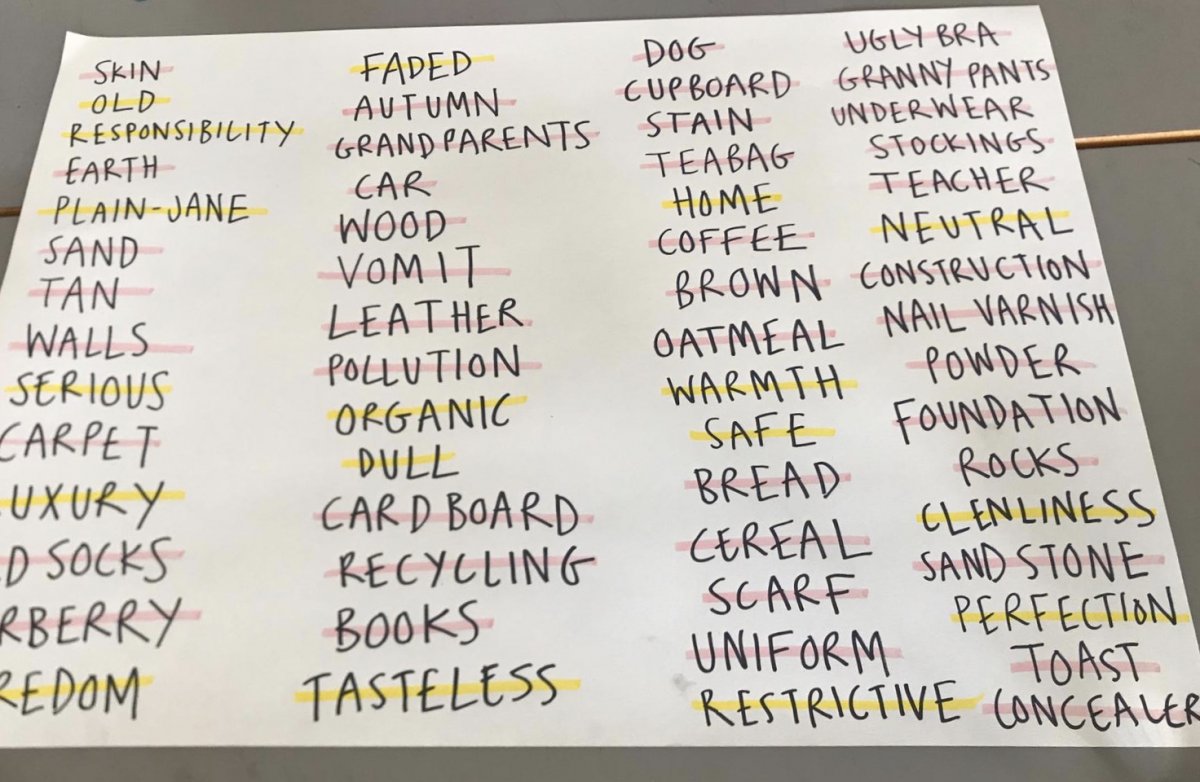 SKIN
OLD
RESPONSIBILITY
EARTH
PLAIN-JANE
SAND
TAN
WALLS
SERIOUS
CARPET
UXURY
D SOCKS
RBERRY
REDOM
FADED
AUTUMN
GRANDPARENTS
CAR
WOOD
VOMIT
LEATHER
POLLUTION
ORGANIC
DULL
CARDBOARD
RECYCLING
BOOKS
TASTELESS
DOG
CUPBOARD
STAIN
TEABAG
HOME
COFFEE
BROWN
OATMEAL
WARMTH
SAFE
BREAD
CEREAL
SCARF
UNIFORM
RESTRICTIVE
UGLY BRA
GRANNY PANTS
UNDERWEAR
STOCKINGS
TEACHER
NEUTRAL
CONSTRUCTION
NAIL VARNISH
POWDER
FOUNDATION
ROCKS
CLENLINESS
SANDSTONE
PERFECTION
TOAST
CONCEALER